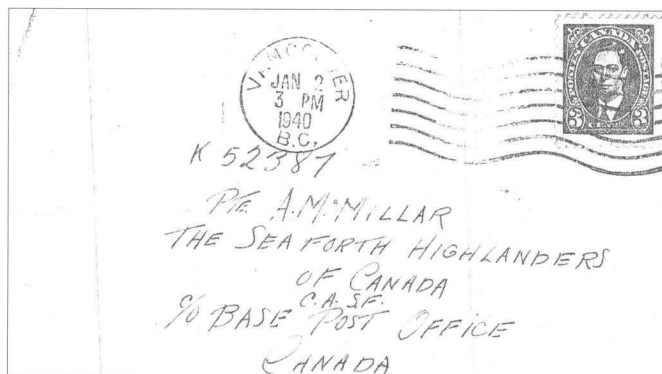 VANCOUVER
JAN 2
3 PM
1940
B.C.
POSTES CANADA POSTAGE
3 3
K 52387
PTE. A. McMILLAR
THE SEAFORTH HIGHLANDERS
OF CANADA
C.A.S.F.
c/o BASE POST OFFICE
CANADA